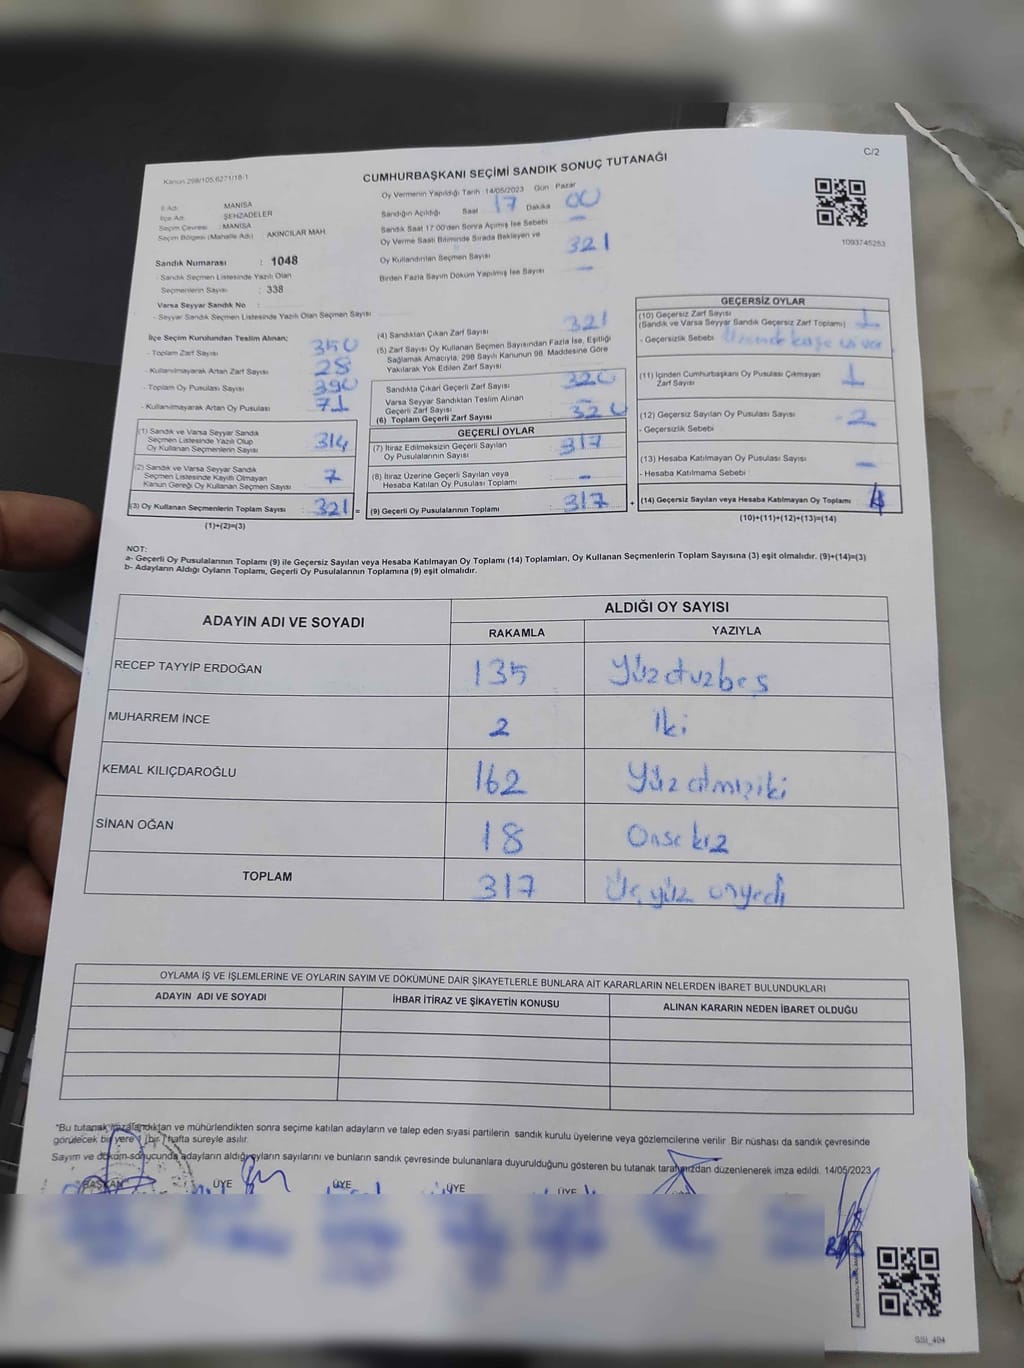 Kanun 298/105,6271/18-1
CUMHURBAŞKANI SEÇİMİ SANDIK SONUÇ TUTANAĞI
C/2
İl Adı : MANİSA
İlçe Adı : ŞEHZADELER
Seçim Çevresi : MANİSA
Seçim Bölgesi (Mahalle Adı) : AKINCILAR MAH.
Sandık Numarası : 1048
Sandık Seçmen Listesinde Yazılı Olan
Seçmenlerin Sayısı : 338
Varsa Seyyar Sandık No :
- Seyyar Sandık Seçmen Listesinde Yazılı Olan Seçmen Sayısı :
Oy Vermenin Yapıldığı Tarih : 14/05/2023 Gün : Pazar
Sandığın Açıldığı Saat 17 Dakika 00
Sandık Saat 17:00'den Sonra Açılmış İse Sebebi -
Oy Verme Saati Bitiminde Sırada Bekleyen ve
Oy Kullandırılan Seçmen Sayısı 321
Birden Fazla Sayım Döküm Yapılmış İse Sayısı -
1093745253
İlçe Seçim Kurulundan Teslim Alınan;
- Toplam Zarf Sayısı 350
- Kullanılmayarak Artan Zarf Sayısı 28
- Toplam Oy Pusulası Sayısı 390
- Kullanılmayarak Artan Oy Pusulası 71
(1) Sandık ve Varsa Seyyar Sandık
Seçmen Listesinde Yazılı Olup
Oy Kullanan Seçmenlerin Sayısı 314
(2) Sandık ve Varsa Seyyar Sandık
Seçmen Listesinde Kayıtlı Olmayan
Kanun Gereği Oy Kullanan Seçmen Sayısı 7
(3) Oy Kullanan Seçmenlerin Toplam Sayısı 321 =
(1)+(2)=(3)
(4) Sandıktan Çıkan Zarf Sayısı 321
(5) Zarf Sayısı Oy Kullanan Seçmen Sayısından Fazla İse, Eşitliği
Sağlamak Amacıyla, 298 Sayılı Kanunun 98. Maddesine Göre
Yakılarak Yok Edilen Zarf Sayısı
Sandıkta Çıkan Geçerli Zarf Sayısı 320
Varsa Seyyar Sandıktan Teslim Alınan
Geçerli Zarf Sayısı
(6) Toplam Geçerli Zarf Sayısı 320
GEÇERLİ OYLAR
(7) İtiraz Edilmeksizin Geçerli Sayılan
Oy Pusulalarının Sayısı 317
(8) İtiraz Üzerine Geçerli Sayılan veya
Hesaba Katılan Oy Pusulası Toplamı -
(9) Geçerli Oy Pusulalarının Toplamı 317 +
GEÇERSİZ OYLAR
(10) Geçersiz Zarf Sayısı
(Sandık ve Varsa Seyyar Sandık Geçersiz Zarf Toplamı) 1
- Geçersizlik Sebebi
(11) İçinden Cumhurbaşkanı Oy Pusulası Çıkmayan
Zarf Sayısı 1
(12) Geçersiz Sayılan Oy Pusulası Sayısı 2
- Geçersizlik Sebebi :
(13) Hesaba Katılmayan Oy Pusulası Sayısı -
- Hesaba Katılmama Sebebi :
(14) Geçersiz Sayılan veya Hesaba Katılmayan Oy Toplamı 4
(10)+(11)+(12)+(13)=(14)
NOT:
a- Geçerli Oy Pusulalarının Toplamı (9) ile Geçersiz Sayılan veya Hesaba Katılmayan Oy Toplamı (14) Toplamları, Oy Kullanan Seçmenlerin Toplam Sayısına (3) eşit olmalıdır. (9)+(14)=(3)
b- Adayların Aldığı Oyların Toplamı, Geçerli Oy Pusulalarının Toplamına (9) eşit olmalıdır.
ADAYIN ADI VE SOYADI ALDIĞI OY SAYISI
RAKAMLA YAZIYLA
RECEP TAYYİP ERDOĞAN 135 Yüzotuzbeş
MUHARREM İNCE 2 iki
KEMAL KILIÇDAROĞLU 162 Yüz atmışiki
SİNAN OĞAN 18 Onsekiz
TOPLAM 317 Üç yüz onyedi
OYLAMA İŞ VE İŞLEMLERİNE VE OYLARIN SAYIM VE DÖKÜMÜNE DAİR ŞİKAYETLERLE BUNLARA AİT KARARLARIN NELERDEN İBARET BULUNDUKLARI
ADAYIN ADI VE SOYADI İHBAR İTİRAZ VE ŞİKAYETİN KONUSU ALINAN KARARIN NEDEN İBARET OLDUĞU
"Bu tutanak imzalandıktan ve mühürlendikten sonra seçime katılan adayların ve talep eden siyasi partilerin sandık kurulu üyelerine veya gözlemcilerine verilir. Bir nüshası da sandık çevresinde
görülecek bir yere 1 (bir) hafta süreyle asılır.
Sayım ve döküm sonucunda adayların aldığı oyların sayılarını ve bunların sandık çevresinde bulunanlara duyurulduğunu gösteren bu tutanak tarafımızdan düzenlenerek imza edildi. 14/05/2023
BAŞKAN ÜYE ÜYE ÜYE ÜYE
SSI_494